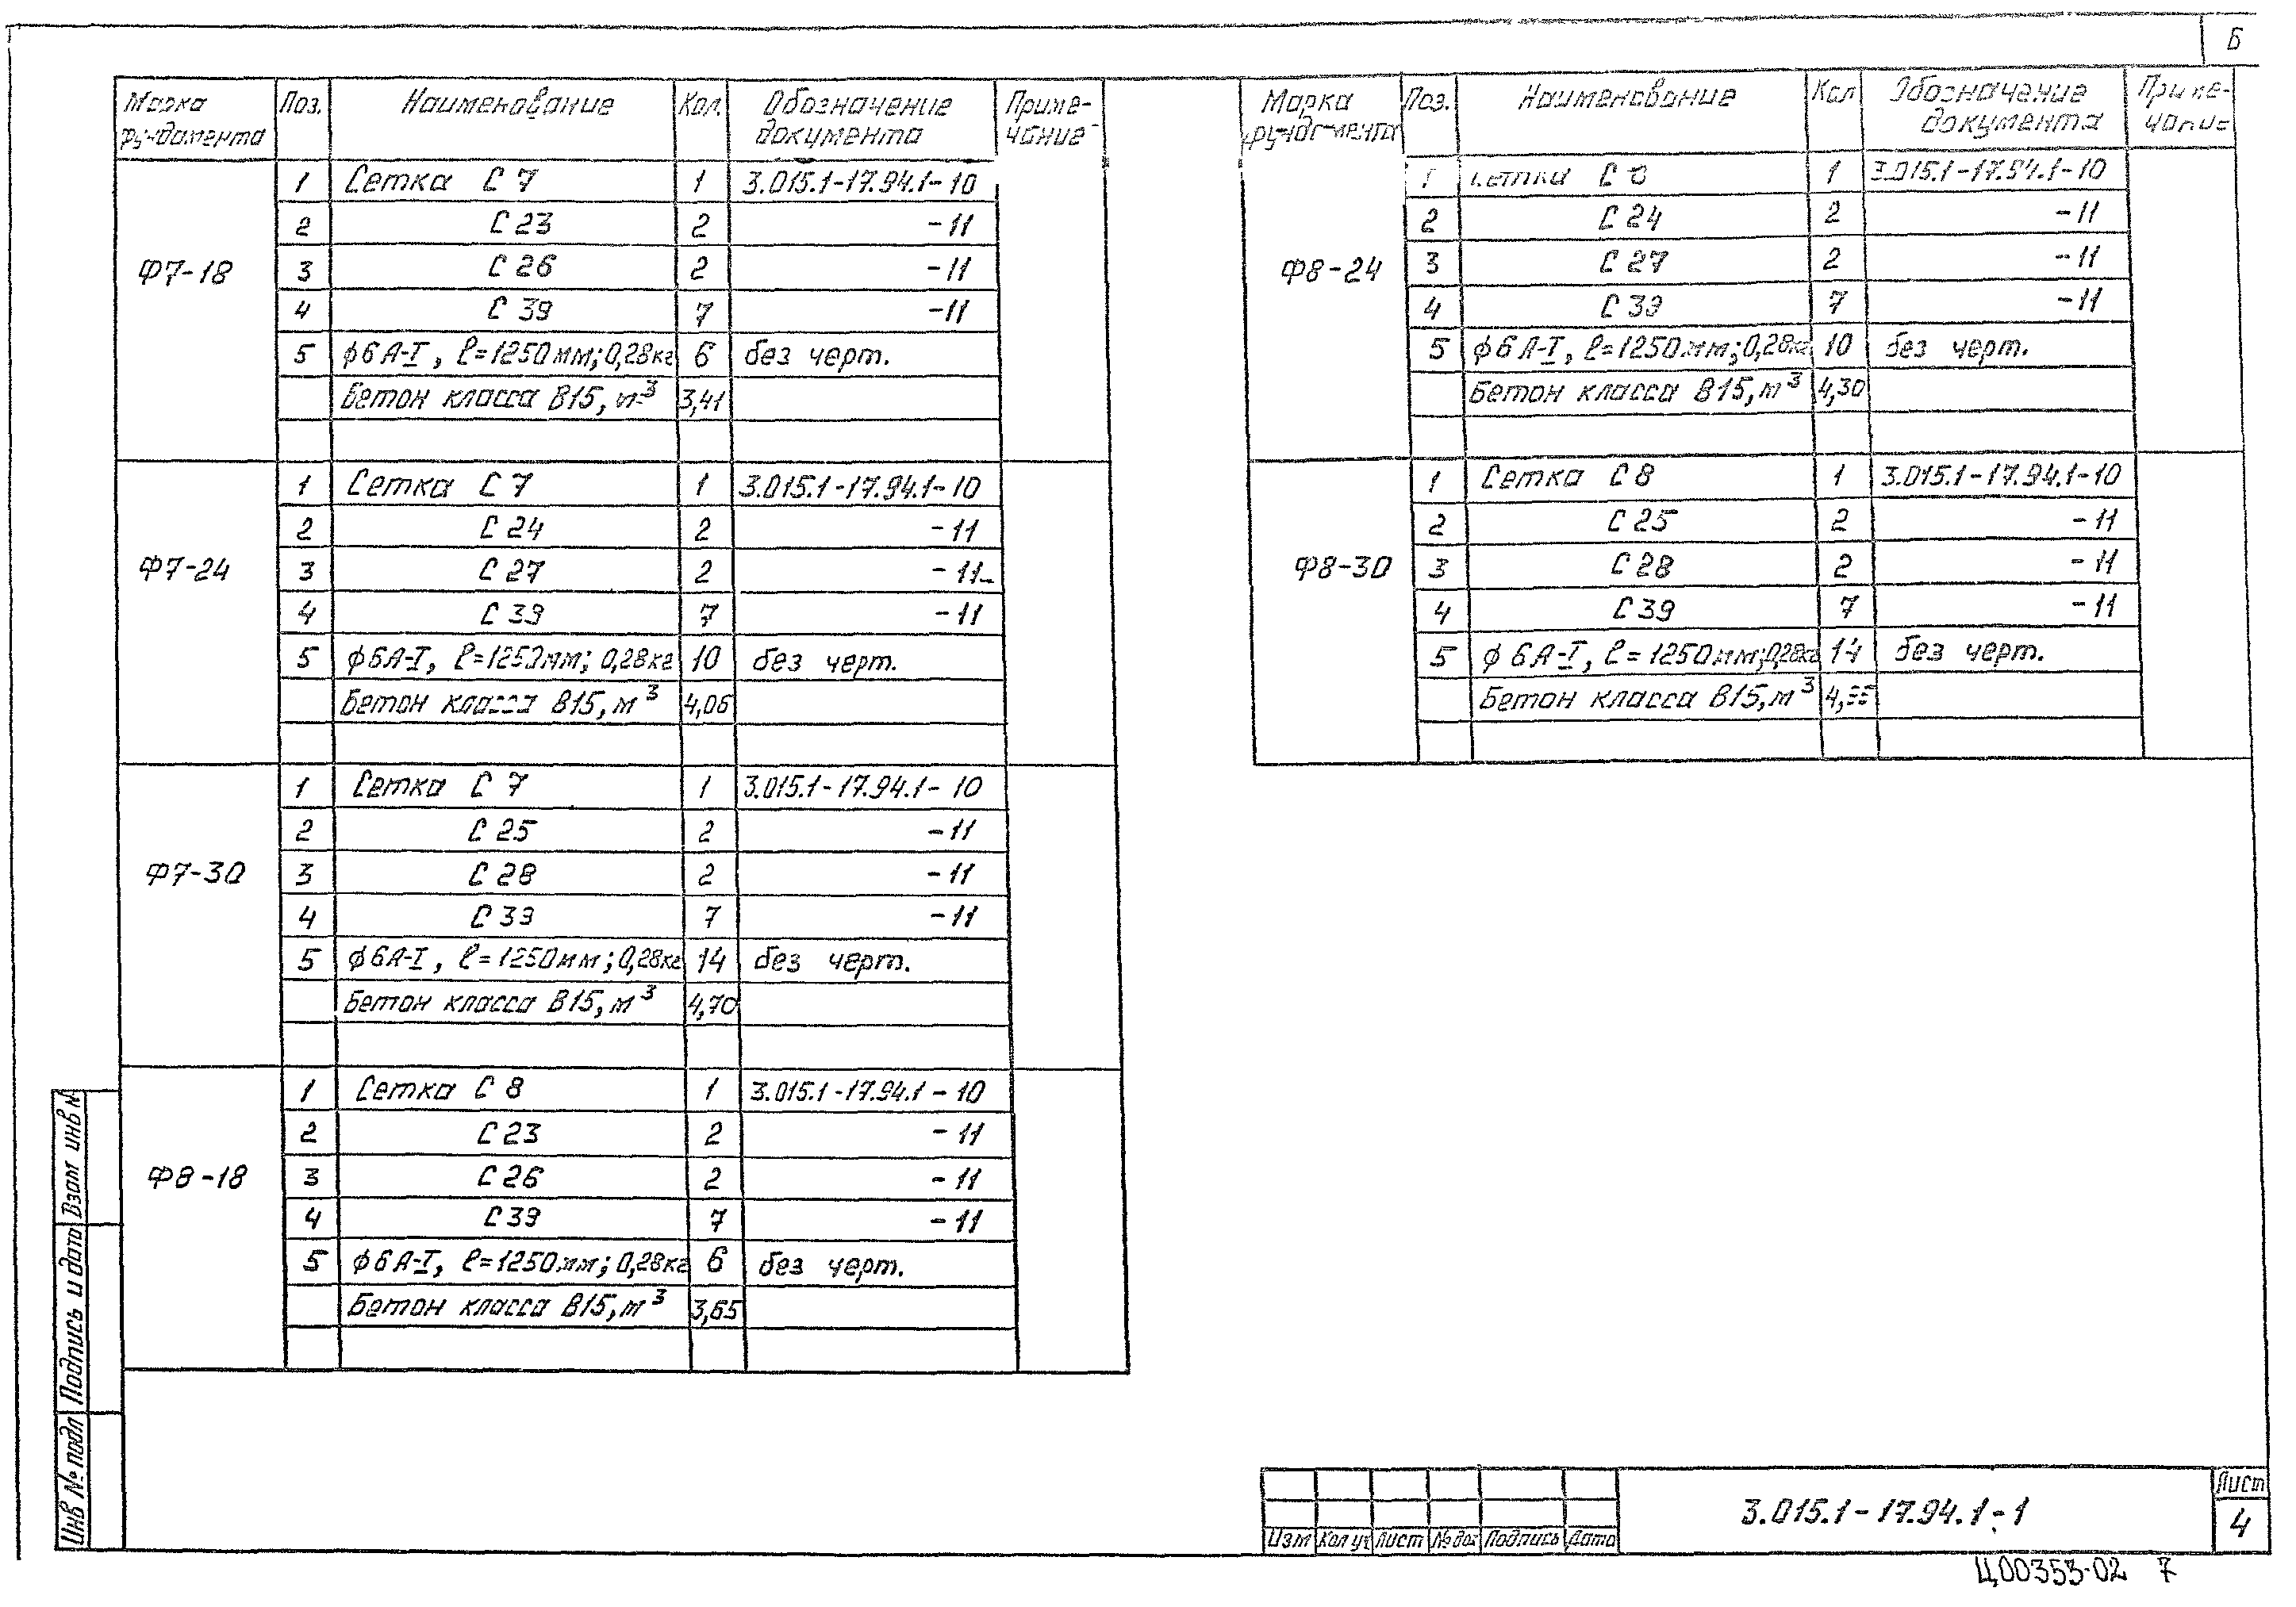 Б
Марка Поз. Наименование Кол. Обозначение Приме-
фундамента документа чание
Ф7-18
1 Сетка С 7 1 3.015.1-17.94.1-10
2 С 23 2 -11
3 С 26 2 -11
4 С 39 7 -11
5 ϕ6А-I, ℓ=1250мм; 0,28кг 6 без черт.
Бетон класса В15, м³ 3,41
Ф7-24
1 Сетка С 7 1 3.015.1-17.94.1-10
2 С 24 2 -11
3 С 27 2 -11
4 С 39 7 -11
5 ϕ6А-I, ℓ=1250мм; 0,28кг 10 без черт.
Бетон класса В15, м³ 4,06
Ф7-30
1 Сетка С 7 1 3.015.1-17.94.1-10
2 С 25 2 -11
3 С 28 2 -11
4 С 39 7 -11
5 ϕ6А-I, ℓ=1250мм; 0,28кг 14 без черт.
Бетон класса В15, м³ 4,70
Ф8-18
1 Сетка С 8 1 3.015.1-17.94.1-10
2 С 23 2 -11
3 С 26 2 -11
4 С 39 7 -11
5 ϕ6А-I, ℓ=1250мм; 0,28кг 6 без черт.
Бетон класса В15, м³ 3,65
Марка Поз. Наименование Кол Обозначение Приме-
фундамента документа чание
Ф8-24
1 Сетка С 8 1 3.015.1-17.94.1-10
2 С 24 2 -11
3 С 27 2 -11
4 С 39 7 -11
5 ϕ6А-I, ℓ=1250мм; 0,28кг 10 без черт.
Бетон класса В15, м³ 4,30
Ф8-30
1 Сетка С 8 1 3.015.1-17.94.1-10
2 С 25 2 -11
3 С 28 2 -11
4 С 39 7 -11
5 ϕ6А-I, ℓ=1250мм; 0,28кг 14 без черт.
Бетон класса В15, м³
Инв № подл Подпись и дата Взам инв №
Изм Кол уч Лист № док Подпись Дата
3.015.1-17.94.1-1
Лист
4
Ц00353-02 7